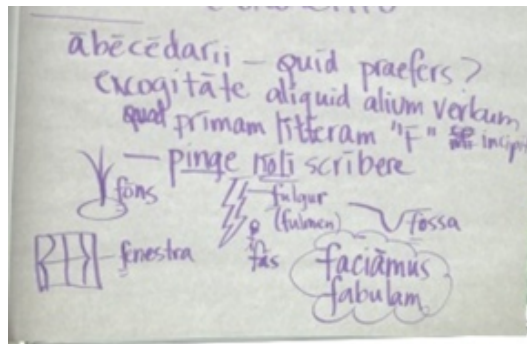 ābēcēdariī — quid praefers?
excogitāte aliquid alium verbum
quod primam litteram "F" incipit
— pinge nōlī scribere
fōns
fulgur
(fulmen)
fossa
fās
fenestra
faciāmus
fabulam